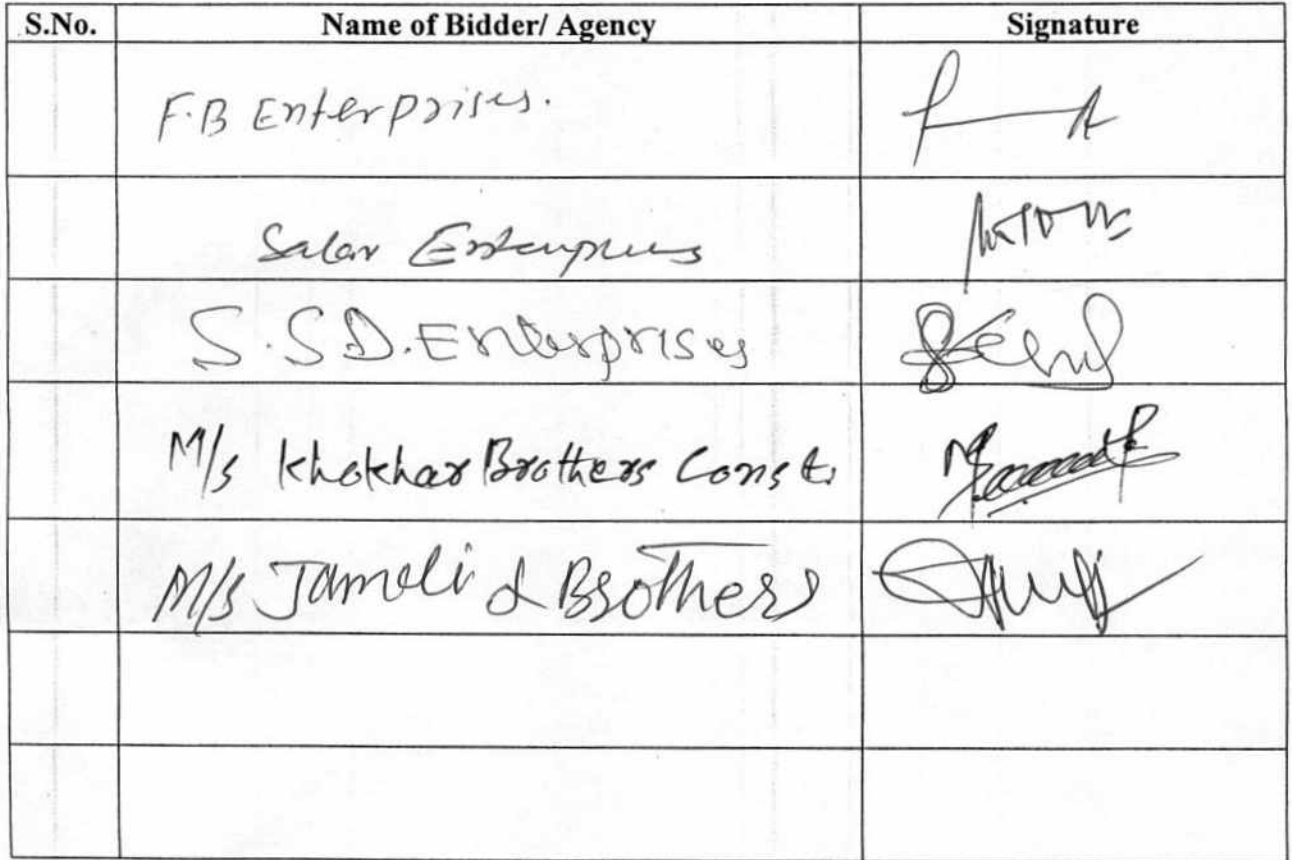 S.No. Name of Bidder/ Agency Signature
F.B Enterprises.
Salar Enterprises
S.S.D. Enterprises
M/s Khokhar Brothers Const.
M/s Jamali & Brothers